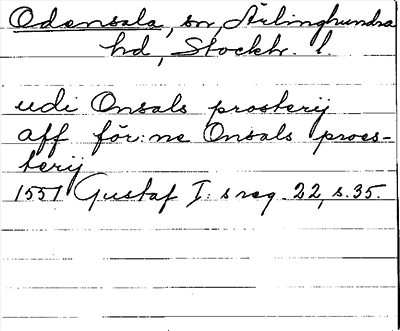 Odensala, sn, Ärlinghundra
hd, Stockh. l.
udi Onsals prosterij
aff för:ne Onsals proes-
terij
1551 Gustaf I: s reg. 22, s. 35.